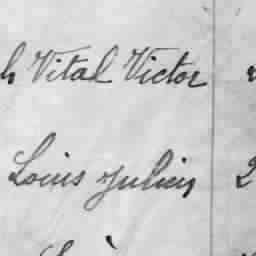 h Vital Victor
Louis Julien 2